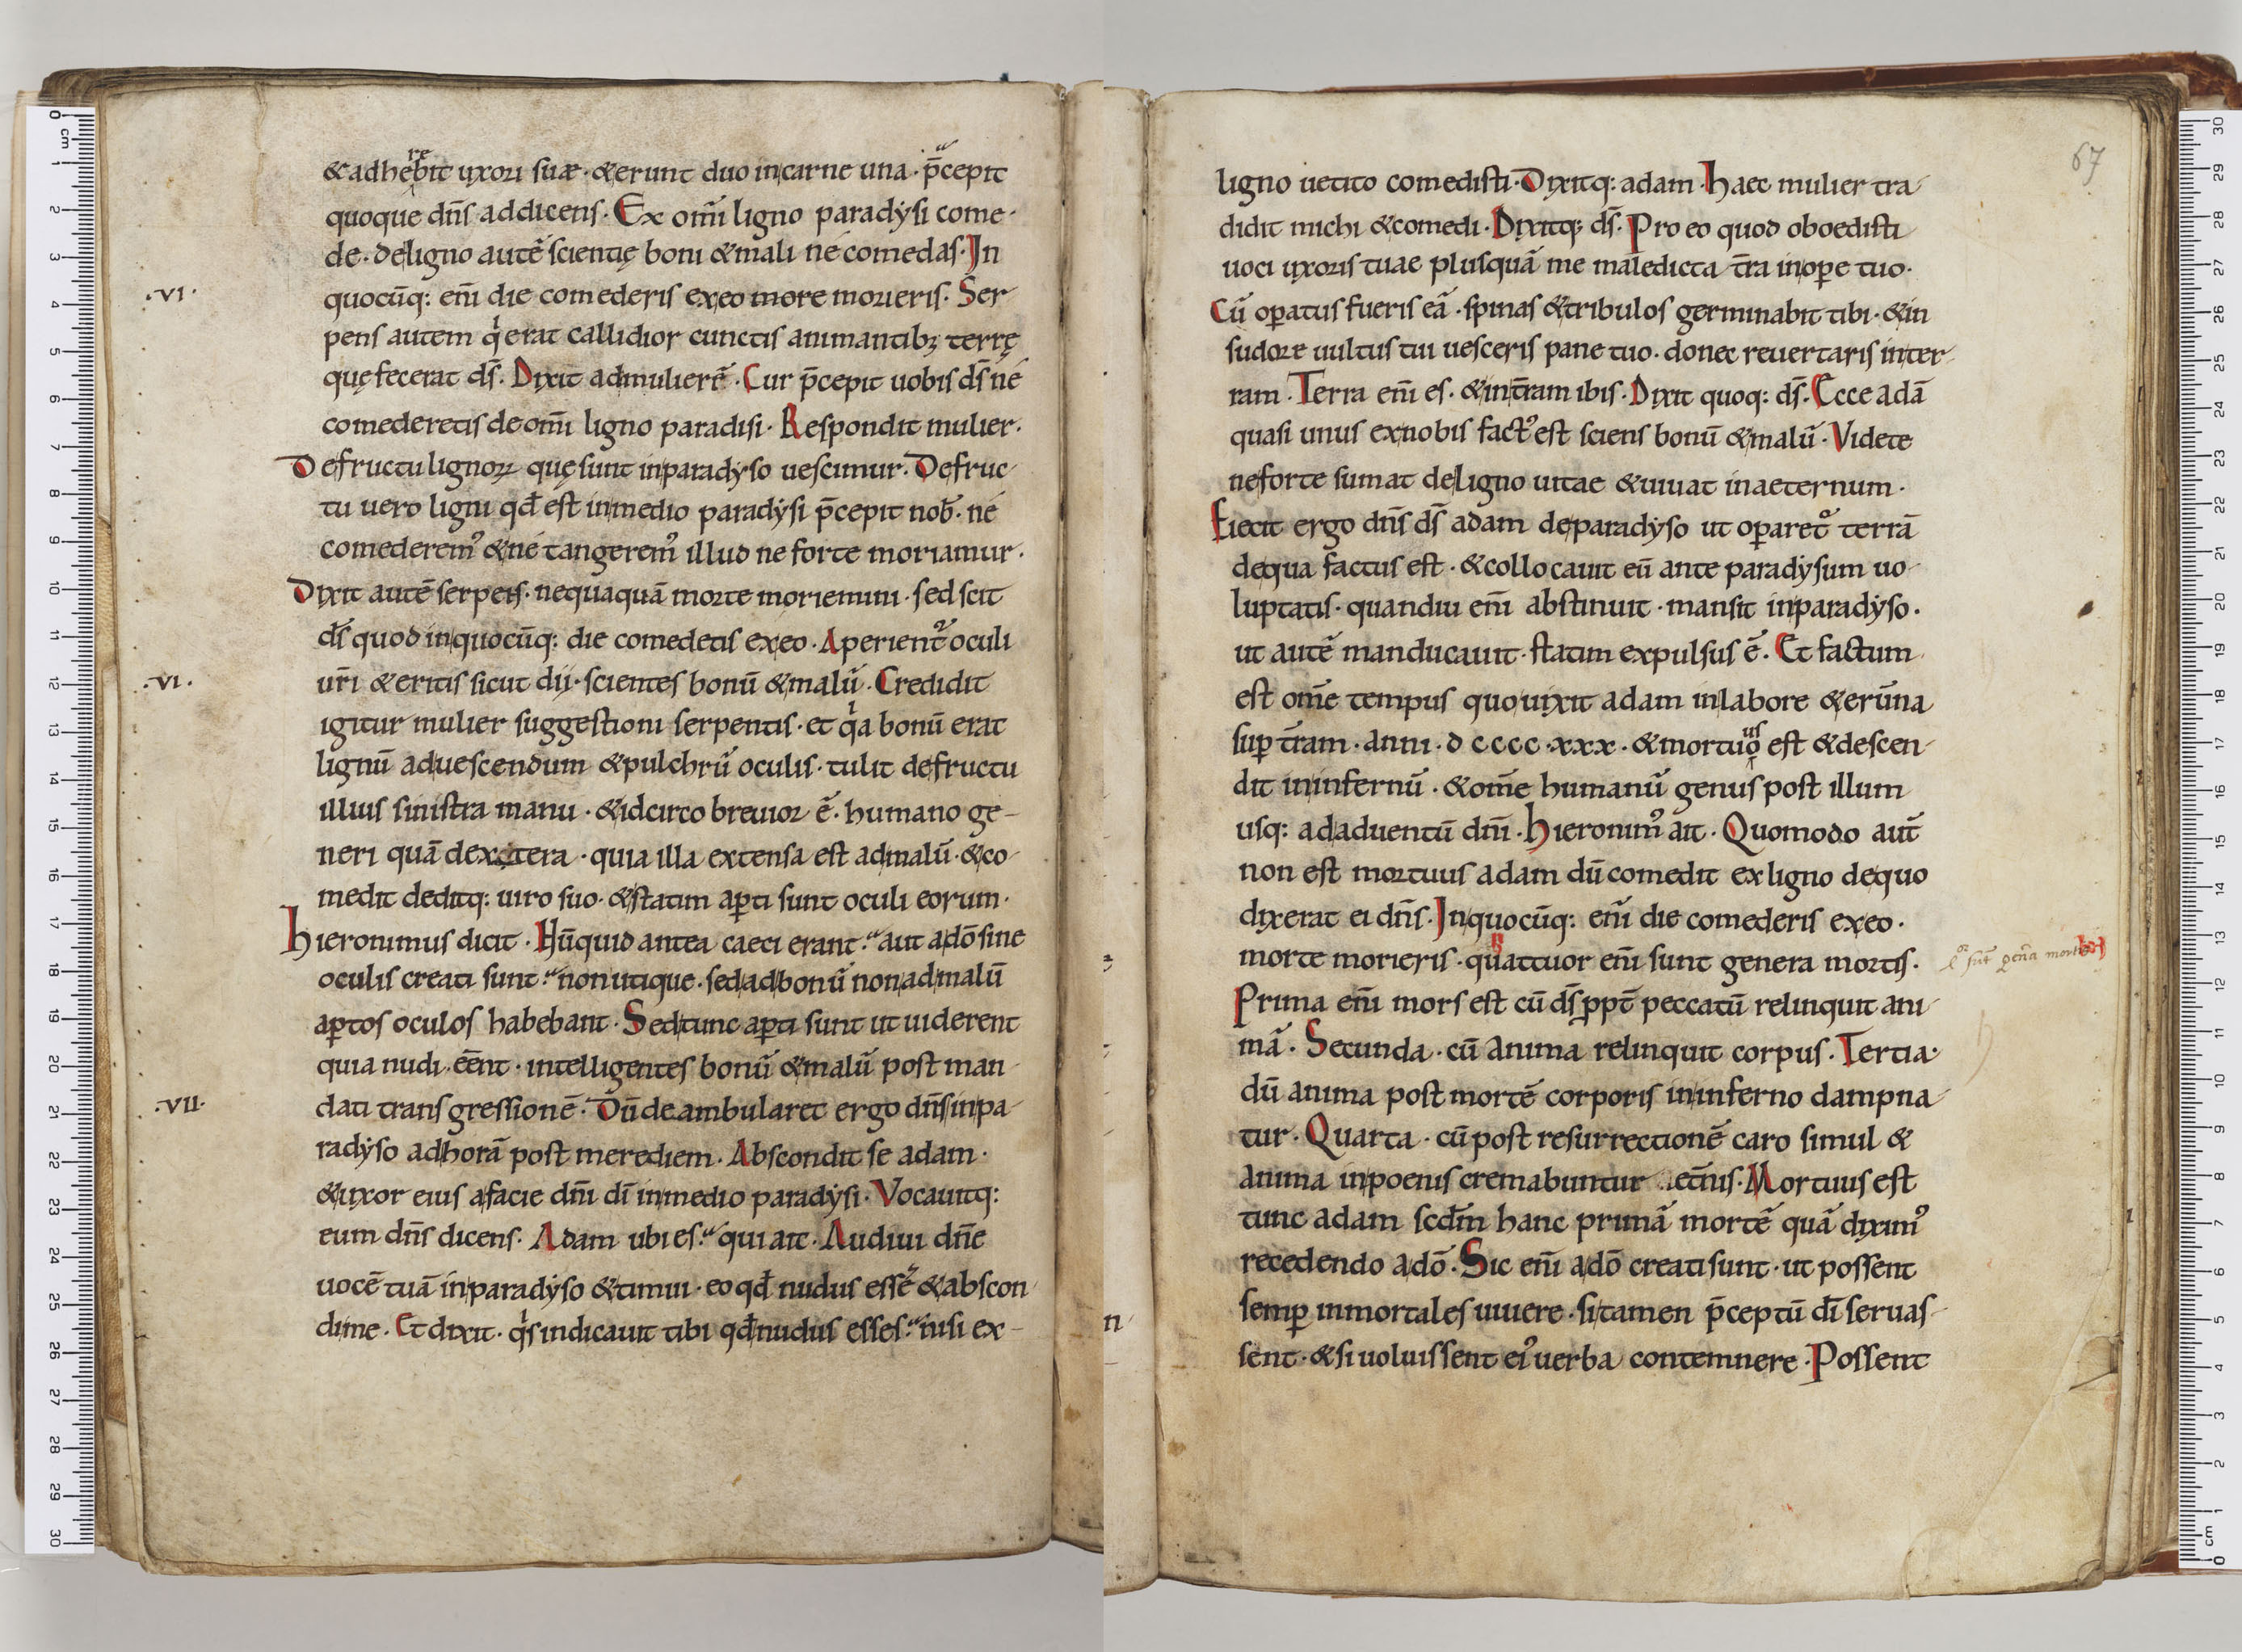 &adherebit uxori suæ · &erunt duo incarne una · p̄cepit
quoque dn̄s addicens · Ex om̄i ligno paradẏsi come·
de · deligno autē scientię boni &mali né comedas · In
·VI·
quocūq: eni̅ die comederis exeo more morieris · Ser
pens autem qͥ erat callidior cunctis animantibꝫ terrę
quę fecerat ds̄ · Dixit admulierē · Cur p̄cepit uobis ds̄ né
comederetis de om̄i ligno paradisi · Respondit mulier ·
De fructu lignoꝝ quę sunt inparadyso uescimur · Defruc-
tu uero ligni qđ est inmedio paradẏsi p̄cepit nob̄ · né
comederem᾽ &né tangerem᾽ illud ne forte moriamur ·
Dixit autē serpens · nequaquā morte moriemini · sed scit
ds̄ quod inquocūq: die comedetis exeo · Aperient᷑ oculi
·VI·
ur̄i &eritis sicut dii · scientes bonū &malū · Credidit
igitur mulier suggestioni serpentis · et qͥa bonū erat
lignū aduescendum &pulchrū oculis · tulit defructu
illius sinistra manu · &idcirco breuior ē · humano ge-
neri quā dextera · quia illa extensa est admalū · &co-
medit deditq: uiro suo · &statim aꝑti sunt oculi eorum ·
hieronimus dicit · Nūquid antea caeci erant · aut adō sine
oculis creati sunt · non utique · sed adbonū non admalū
aꝑtos oculos habebant · Sed tunc aꝑti sunt ut uiderent
quia nudi · ēēnt · intelligentes bonū &malū post man-
·VII·
dati transgressionē · Dū deambularet ergo dn̄s inpa-
radẏso adhorā post merediem · Abscondit se adam ·
&uxor eius afacie dn̄i dī inmedio paradẏsi · Vocauitq:
eum dn̄s dicens · Adam ubi es · qui ait · Audiui dn̄e
uocē tuā inparadẏso &timui · eo qđ nudus essē &abscon-
di me · Et dixit · qͥs indicauit tibi qđ nudus esses · nisi ex-
67
ligno uetito comedisti · Dixitq: adam · Haec mulier tra-
didit michi &comedi · Dixitq: ds̄ · Pro eo quod oboedisti
uoci uxoris tuae plusquā me maledicta t̄ra inoꝑe tuo ·
Cū oꝑatus fueris eā · spinas &tribulos germinabit tibi · &in
sudore uultus tui uesceris pane tuo · donec reuertaris inter-
ram · Terra eni̅ es · &int̄ram ibis · Dixit quoq: ds̄ · Ecce adā
quasi unus exnobis fact᾽ est sciens bonū &malū · Videte
neforte sumat deligno uitae &uiuat inaeternum ·
Eiecit ergo dn̄s ds̄ adam deparadẏso ut oꝑaret᷑ terrā
dequa factus est · &collocauit eū ante paradẏsum uo-
luptatis · quandiu eni̅ abstinuit · mansit inparadẏso ·
ut autē manducauit · statim expulsus ē · Et factum
est om̄e tempus quo uixit adam inlabore &erūna
suꝑ t̄ram · anni · d cccc · xxx · &mortuus est &descen-
dit ininfernū · &om̄e humanū genus post illum
usq: adaduentū dn̄i · hieronim᾽ ait · Quomodo aut̄
non est mortuus adam dū comedit ex ligno dequo
dixerat ei dn̄s · Inquocūq: eni̅ die comederis exeo ·
morte morieris · quattuor eni̅ sunt genera mortis ·
Prima eni̅ mors est cū ds̄ ꝓpt̄ peccatū relinquit ani-
mā · Secunda · cū anima relinquit corpus · Tertia ·
dū anima post mortē corporis ininferno dampna-
tur · Quarta · cū post resurrectionē caro simul &
anima inpoenis cremabuntur et̄nis · Mortuus est
tunc adam scd̄m hanc primā mortē quā dixim᾽
recedendo adō · Sic eni̅ adō creati sunt · ut possent
semꝑ inmortales uiuere · si tamen p̄ceptū dī seruas-
sent · &si uoluissent ei᾽ uerba contemnere · Possent